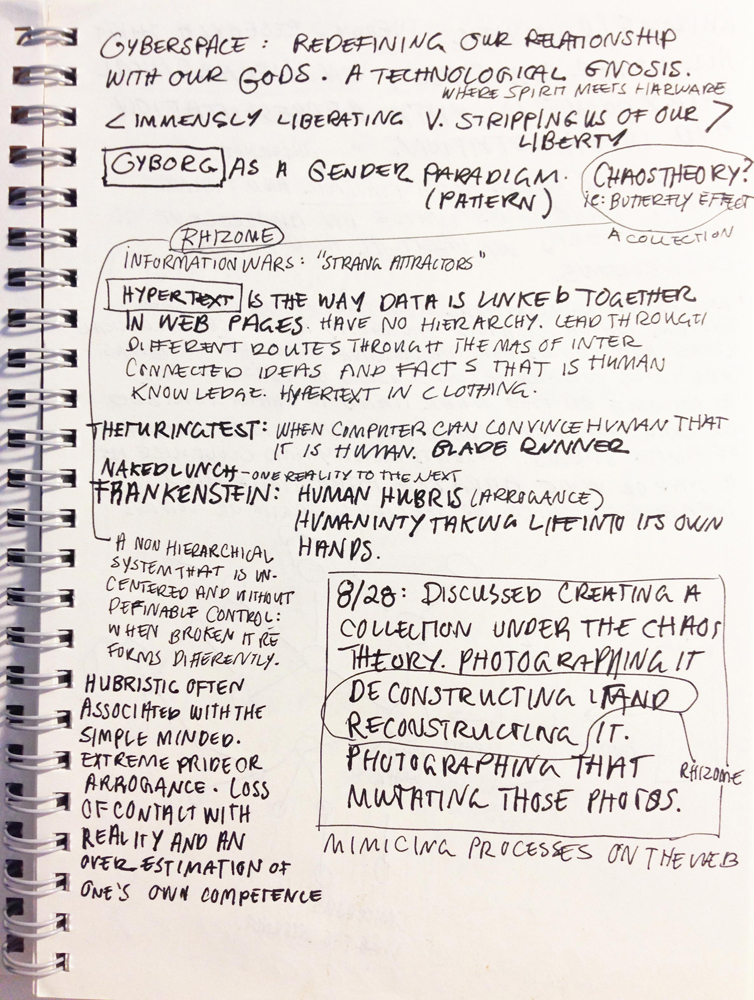 CYBERSPACE : REDEFINING OUR RELATIONSHIP
WITH OUR GODS. A TECHNOLOGICAL GNOSIS.
WHERE SPIRIT MEETS HARWARE
< IMMENSLY LIBERATING V. STRIPPING US OF OUR >
LIBERTY
CYBORG AS A GENDER PARADIGM.
(PATTERN)
CHAOSTHEORY?
IE: BUTERFLY EFFECT
A COLLECTION
RHIZOME
INFORMATION WARS: "STRANG ATTRACTORS"
HYPERTEXT IS THE WAY DATA IS LINKED TOGETHER
IN WEB PAGES. HAVE NO HIERARCHY. LEAD THROUGH
DIFFERENT ROUTES THROUGH THE MAS OF INTER
CONNECTED IDEAS AND FACTS THAT IS HUMAN
KNOWLEDGE. HYPERTEXT IN CLOTHING.
THE TURING TEST: WHEN COMPUTER CAN CONVINCE HUMAN THAT
IT IS HUMAN. BLADE RUNNER
NAKED LUNCH - ONE REALITY TO THE NEXT
FRANKENSTEIN: HUMAN HUBRIS (ARROGANCE)
HUMANINTY TAKING LIFE INTO ITS OWN
HANDS.
A NON HIERARCHICAL
SYSTEM THAT IS UN-
CENTERED AND WITHOUT
DEFINABLE CONTROL:
WHEN BROKEN IT RE
FORMS DIFERENTLY.
HUBRISTIC OFTEN
ASSOCIATED WITH THE
SIMPLE MINDED.
EXTREME PRIDE OR
ARROGANCE. LOSS
OF CONTACT WITH
REALITY AND AN
OVER ESTIMATION OF
ONE'S OWN COMPETENCE
8/28: DISCUSSED CREATING A
COLLECTION UNDER THE CHAOS
THEORY. PHOTOGRAPHING IT
DECONSTRUCTING IT AND
RECONSTRUCTING IT.
PHOTOGRAPHING THAT
MUTATING THOSE PHOTOS.
RHIZOME
MIMICING PROCESSES ON THE WEB